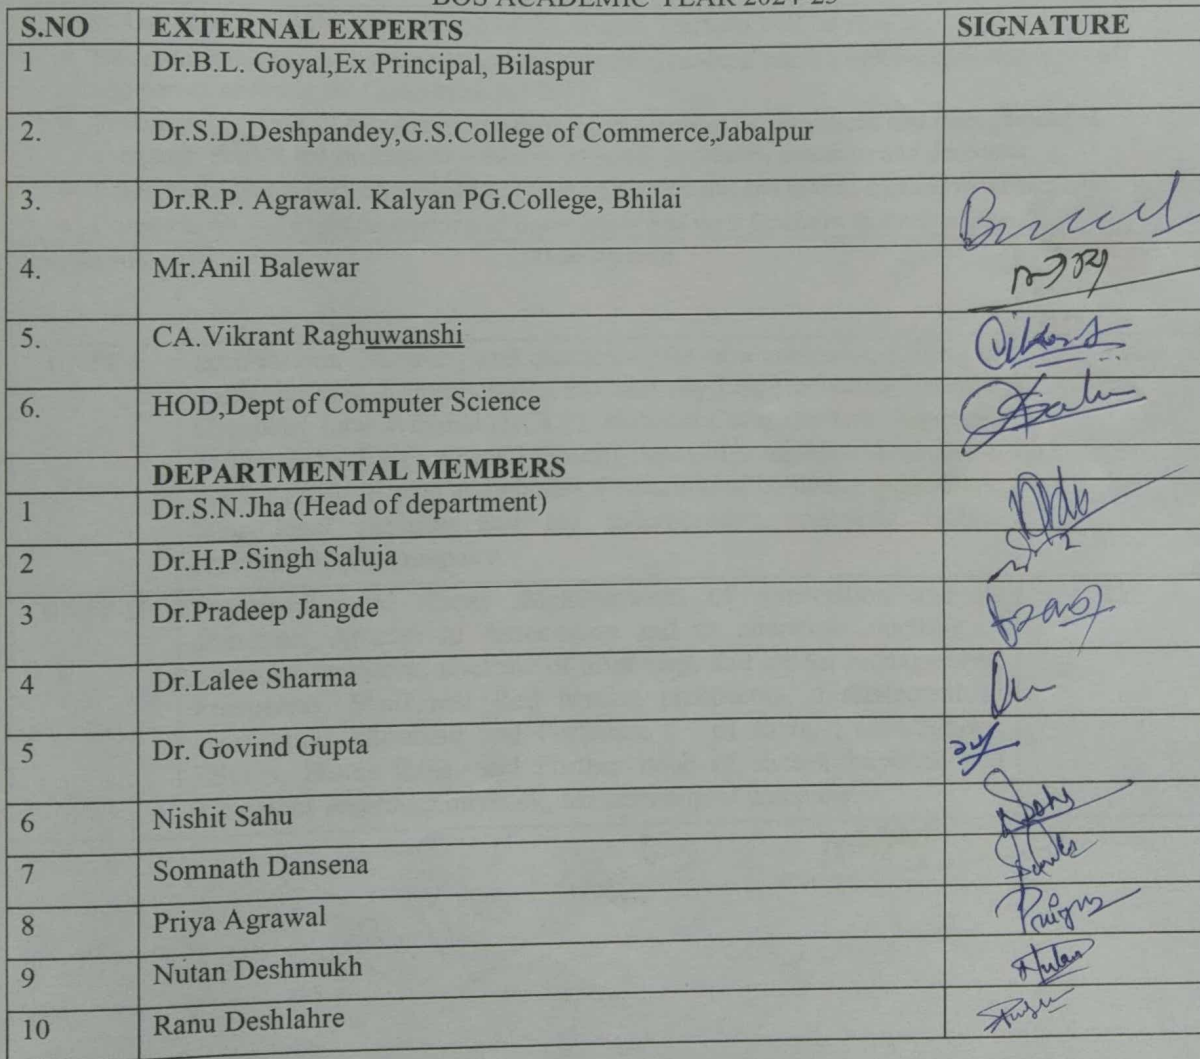 BOS ACADEMIC YEAR 2024-25
S.NO EXTERNAL EXPERTS SIGNATURE
1 Dr.B.L. Goyal,Ex Principal, Bilaspur
2. Dr.S.D.Deshpandey,G.S.College of Commerce,Jabalpur
3. Dr.R.P. Agrawal. Kalyan PG.College, Bhilai
4. Mr.Anil Balewar
5. CA.Vikrant Raghuwanshi
6. HOD,Dept of Computer Science
DEPARTMENTAL MEMBERS
1 Dr.S.N.Jha (Head of department)
2 Dr.H.P.Singh Saluja
3 Dr.Pradeep Jangde
4 Dr.Lalee Sharma
5 Dr. Govind Gupta
6 Nishit Sahu
7 Somnath Dansena
8 Priya Agrawal
9 Nutan Deshmukh
10 Ranu Deshlahre